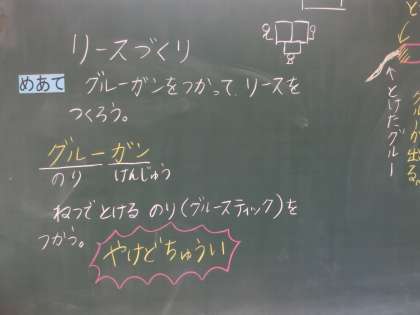 リースづくり
めあて グルーガンをつかって、リースを
つくろう。
グルーガン
のり けんじゅう
ねつでとける のり(グルースティック)を
つかう。
やけどちゅうい
と
グルーが出る。
←とけたグルー